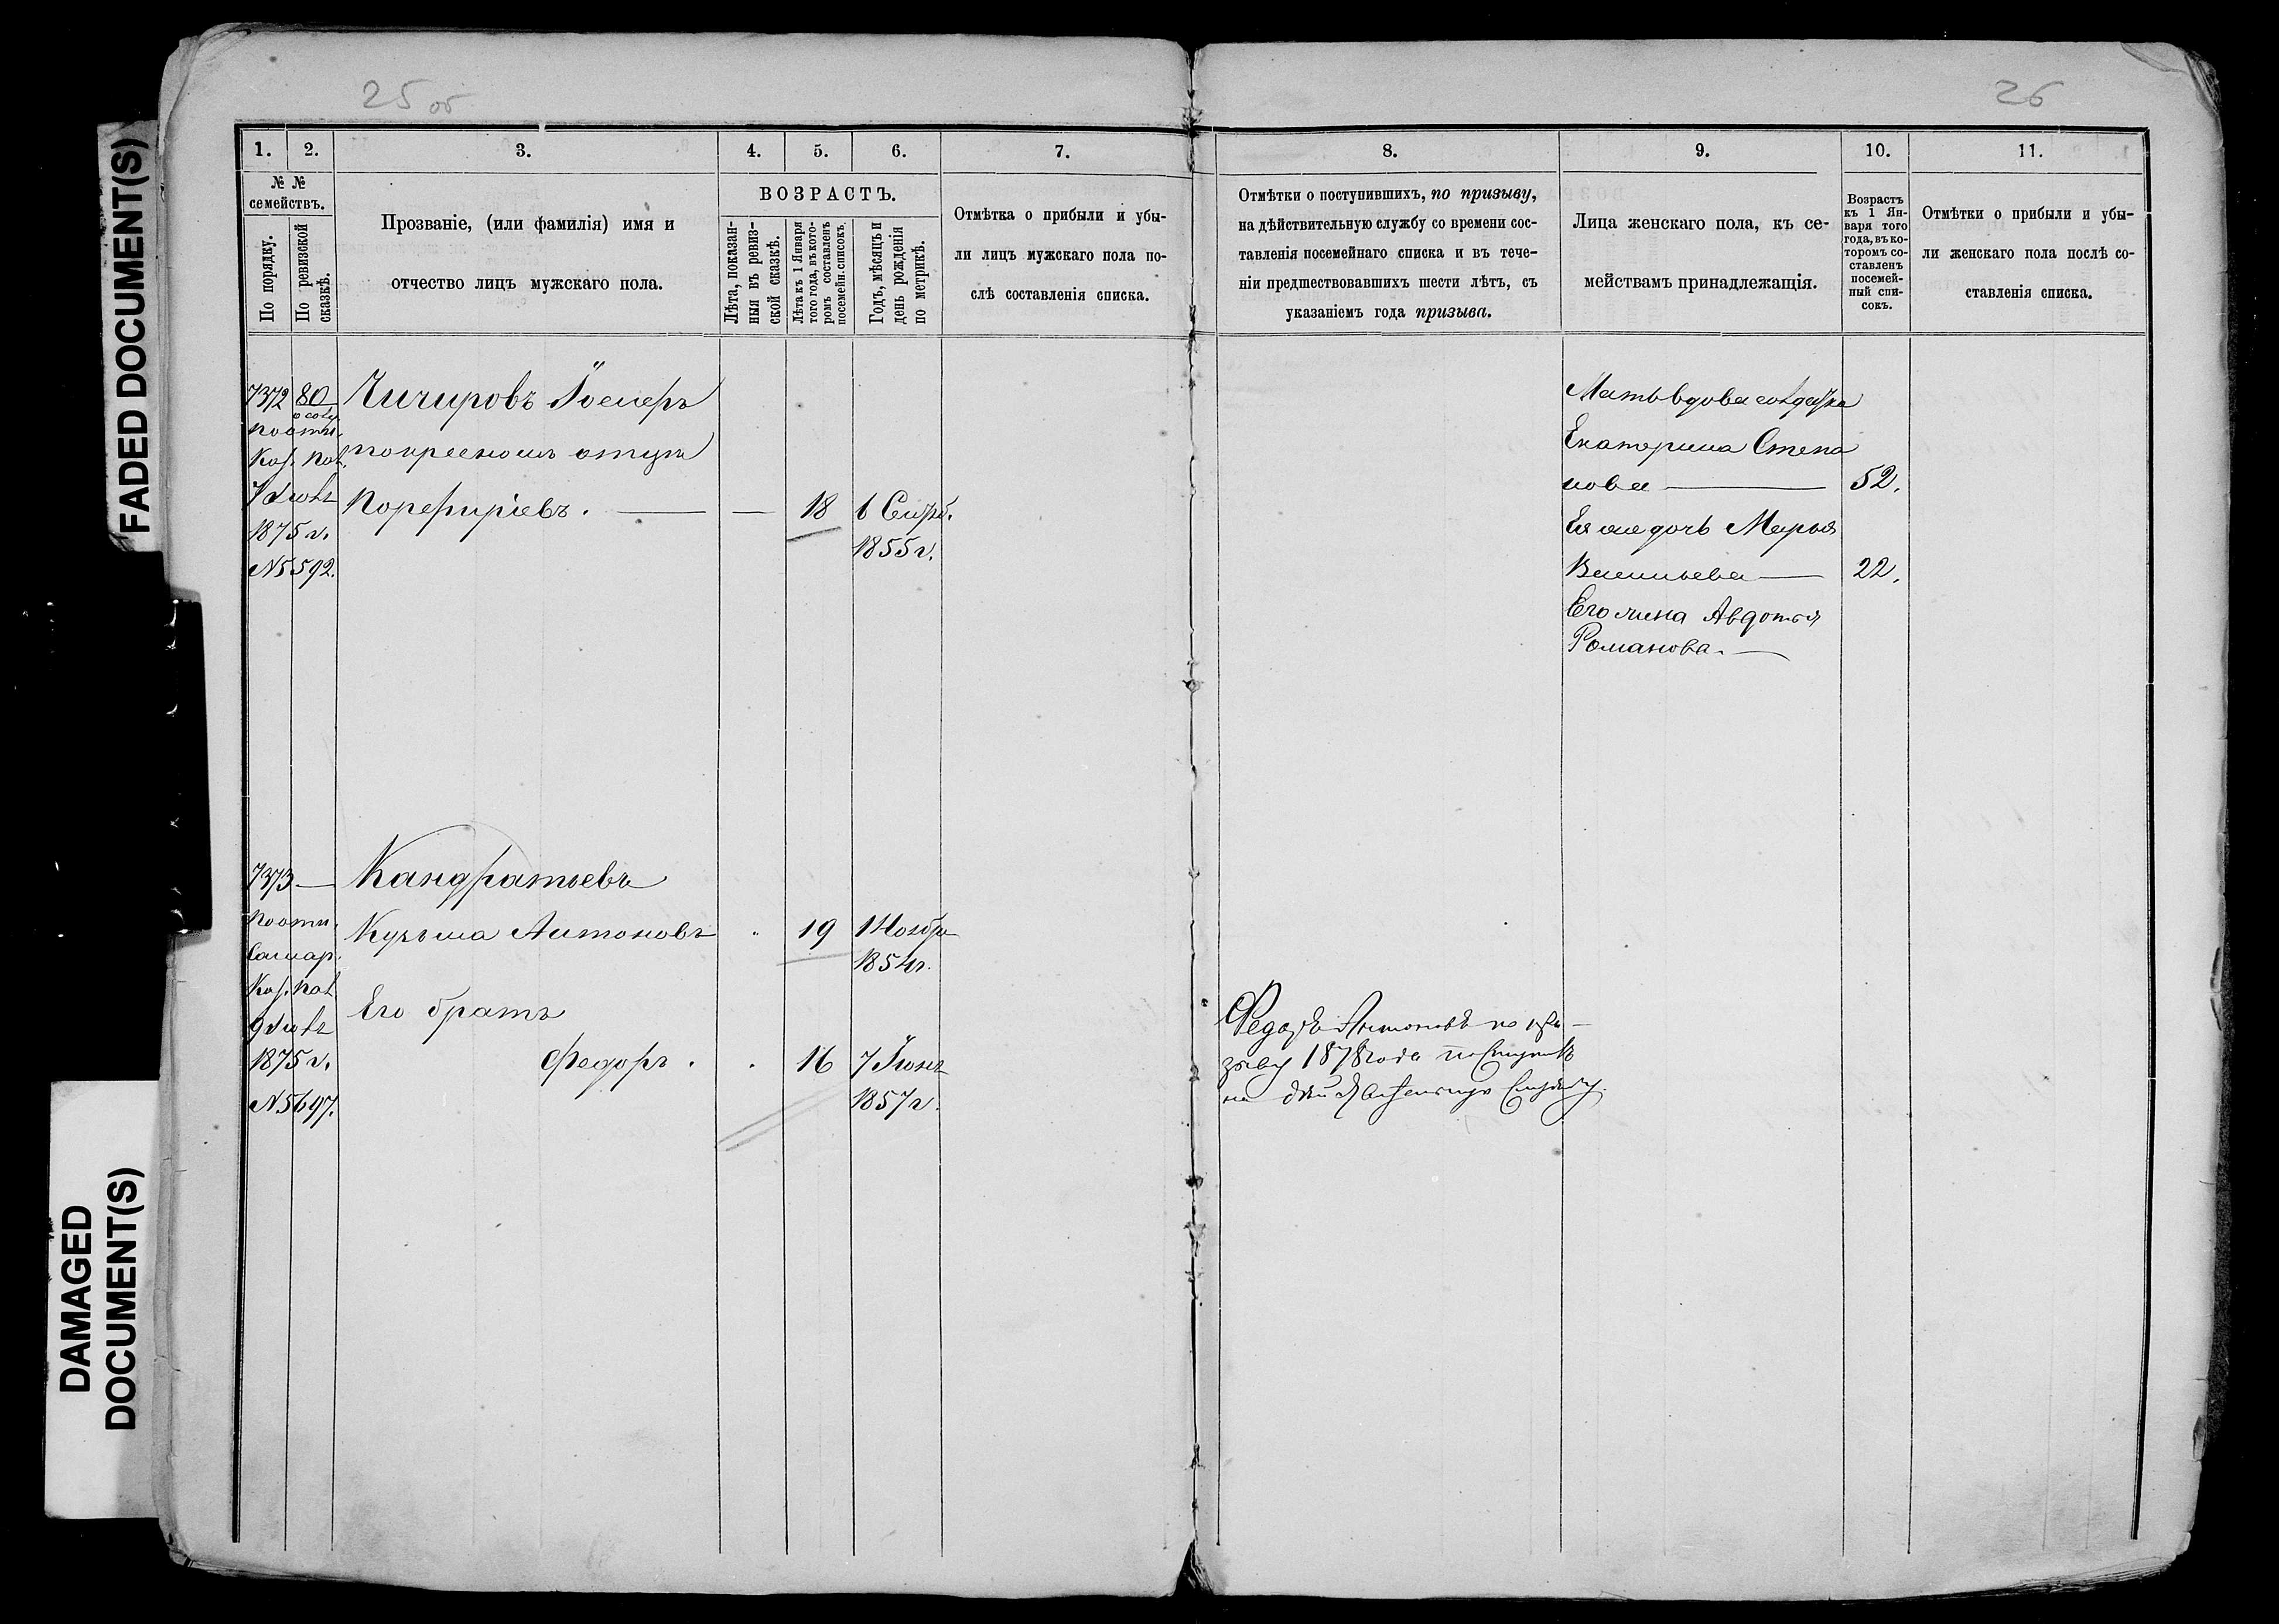 FADED DOCUMENT(S)
DAMAGED
DOCUMENT(S)
25 об
26
1.
2.
3.
4.
5.
6.
7.
8.
9.
10.
11.
№ №
семействъ.
По порядку.
По ревизской
сказкѣ.
Прозваніе, (или фамилія) имя и
отчество лицъ мужскаго пола.
ВОЗРАСТЪ.
Лѣта, показан-
ныя въ ревиз-
ской сказкѣ.
Лѣта къ 1 Января
того года, въ кото-
ромъ составленъ
посемейн. списокъ.
Годъ, мѣсяцъ и
день рожденія
по метрикѣ.
Отмѣтка о прибыли и убы-
ли лицъ мужскаго пола по-
слѣ составленія списка.
Отмѣтки о поступившихъ, по призыву,
на дѣйствительную службу со времени сос-
тавленія посемейнаго списка и въ тече-
ніи предшествовавшихъ шести лѣтъ, съ
указаніемъ года призыва.
Лица женскаго пола, къ се-
мействамъ принадлежащія.
Возрастъ
къ 1 Ян-
варя того
года, въ ко-
торомъ со-
ставленъ
посемей-
ный спи-
сокъ.
Отмѣтки о прибыли и убы-
ли женскаго пола послѣ со-
ставленія списка.
7372
80
по отн.
Каз. Пал.
7 Июля
1875 г.
№ 5592.
Чичировъ
отцу
Порефиріевъ.
18
6 Сентб.
1855 г.
Мать вдова солдатка
Екатерина Степа
нова
52.
Ея же дочь Марья
Васильева
22.
Его жена Авдотья
Романова.
7373
По отн.
Самар.
Каз. Пал
9 Июля
1875 г.
№ 5697.
Кандратьевъ
Кузьма Антоновъ
19
1 Ноября
1854 г.
Его братъ
Федоръ.
16
7 Іюня
1857 г.
Федоръ Антоновъ по при-
зыву 1878 года поступилъ
на дѣйствительную службу.